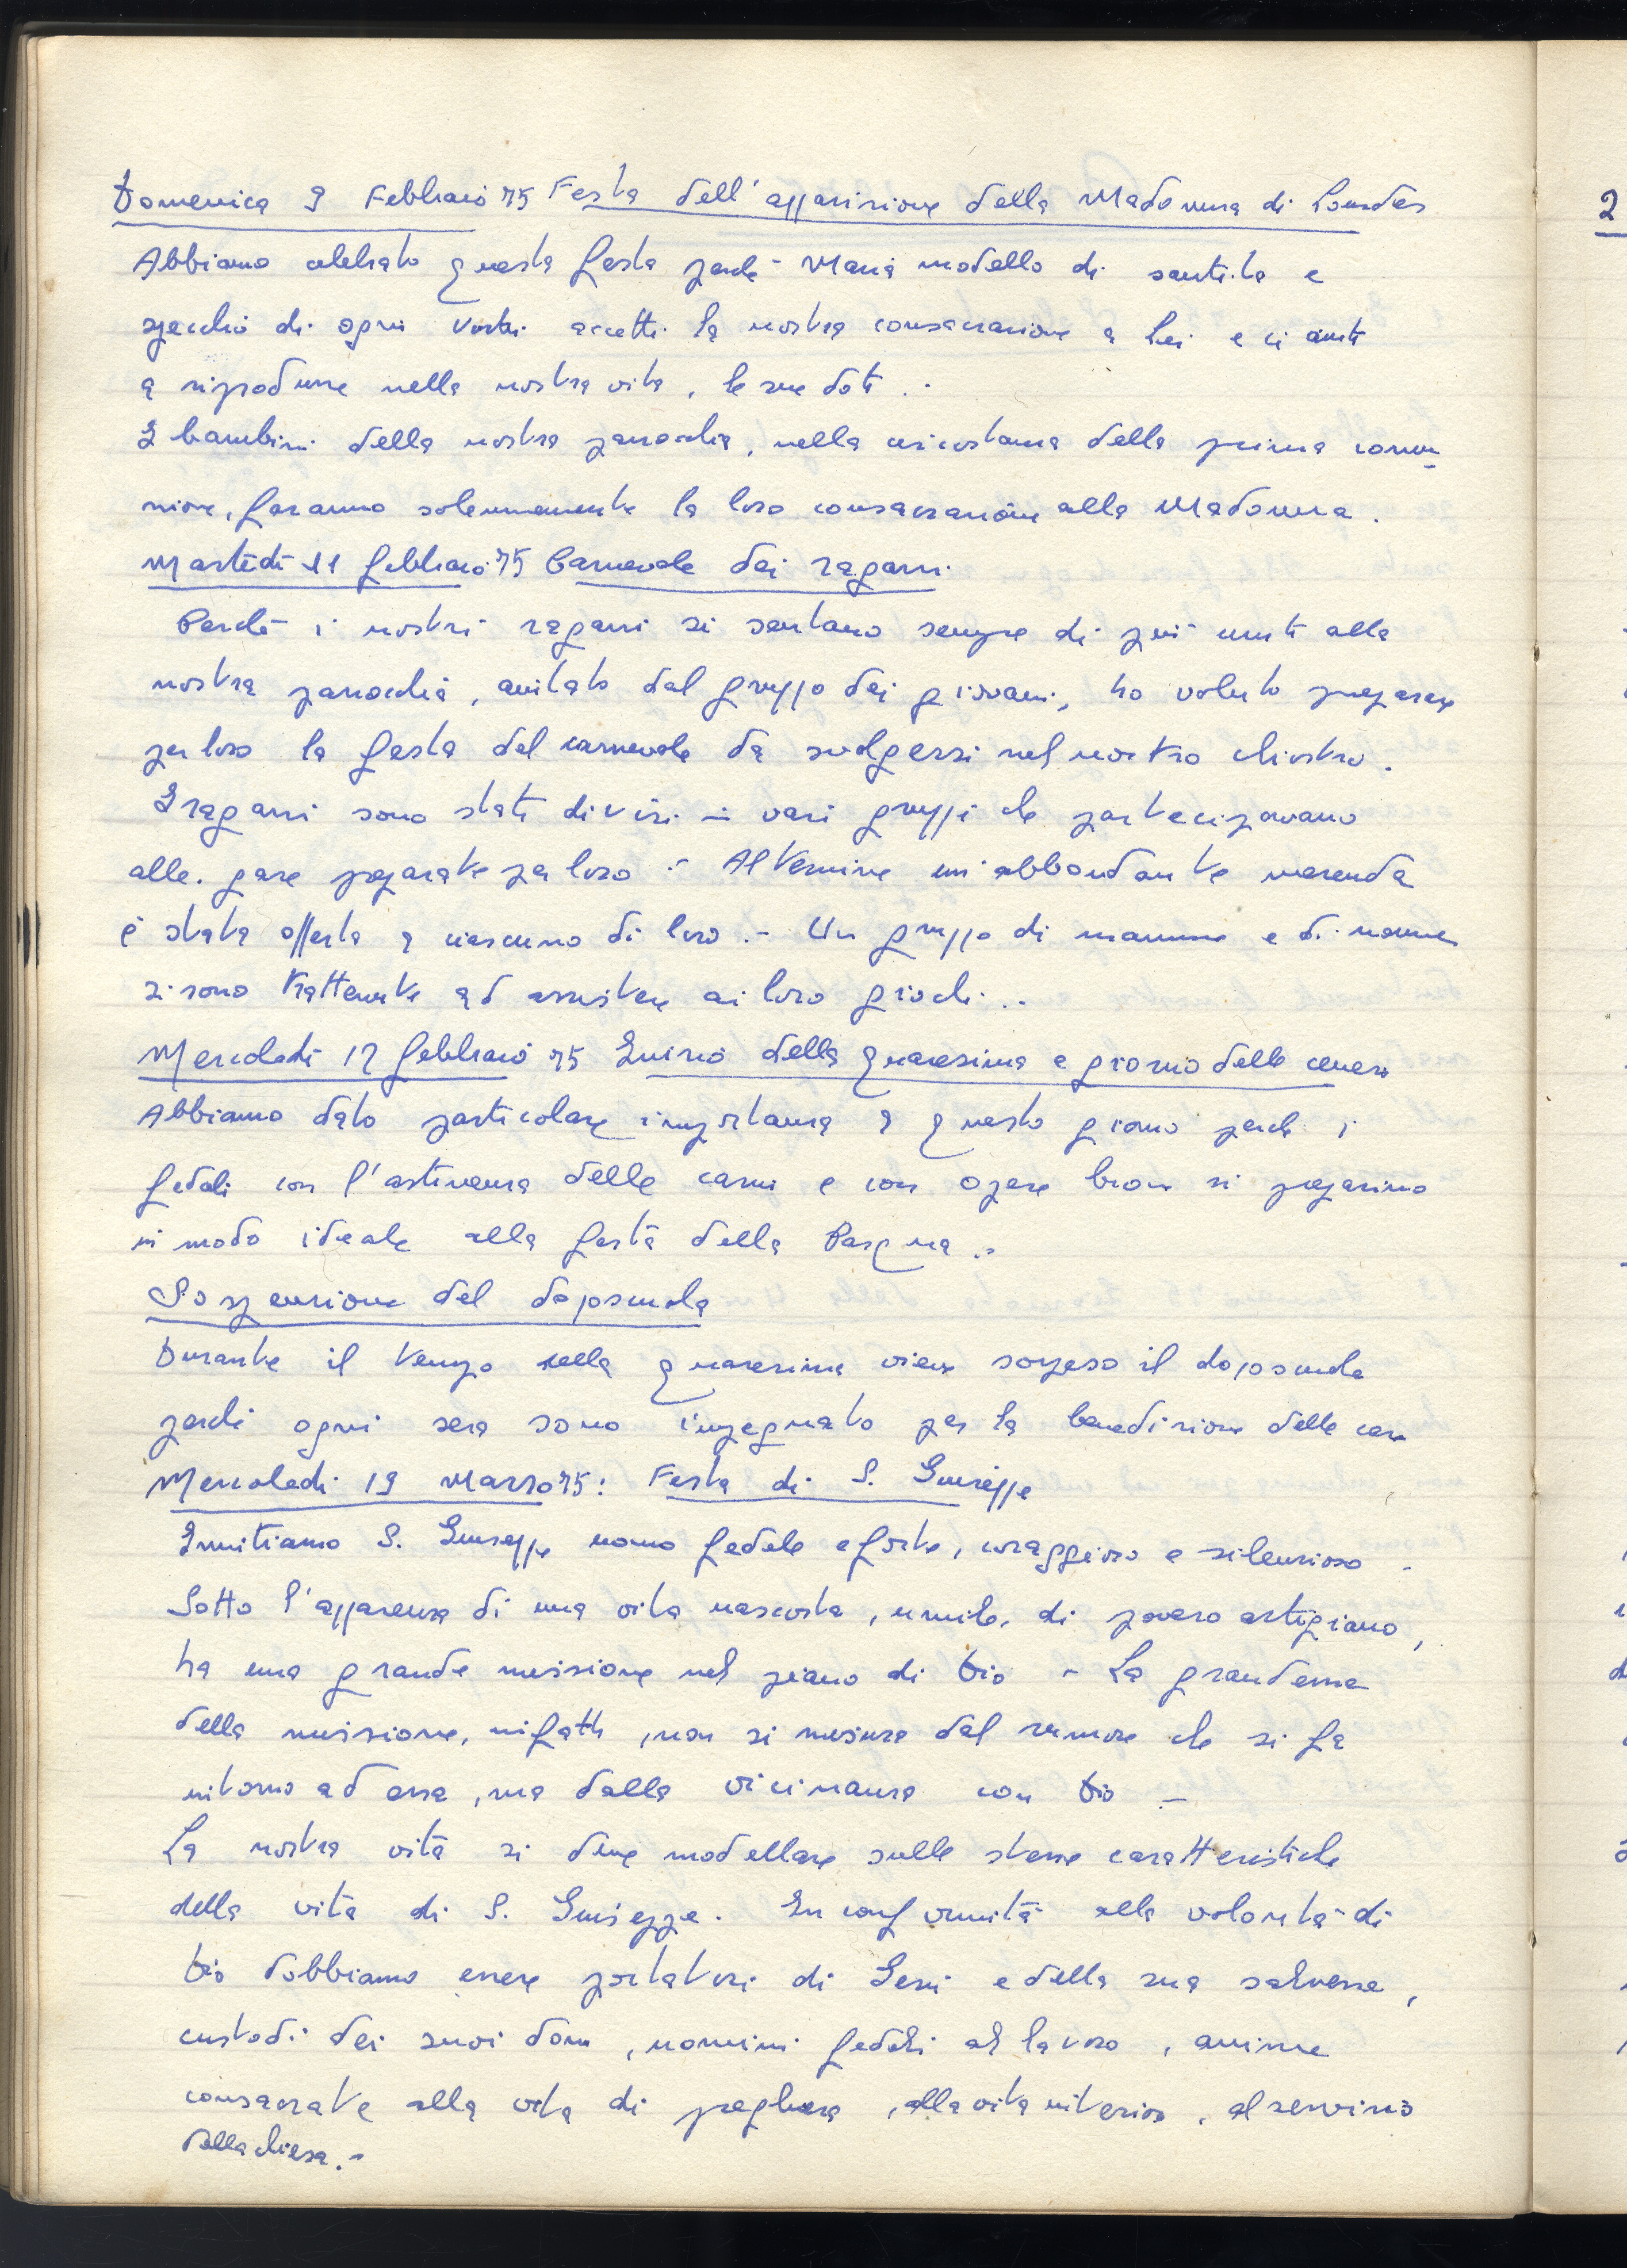 Domenica 9 Febbraio 75 Festa dell'apparizione della Madonna di Lourdes
Abbiamo celebrato questa festa perchè Maria modello di santità e
specchio di ogni virtù accetti la nostra consacrazione a Lei e ci aiuti
a riprodurre nella nostra vita, le sue doti.
I bambini della nostra parrocchia, nella circostanza della prima comu-
nione, faranno solennemente la loro consacrazione alla Madonna.
Martedì 11 febbraio 75 Carnevale dei ragazzi
Perchè i nostri ragazzi si sentano sempre di più uniti alla
nostra parrocchia, aiutato dal gruppo dei giovani, ho voluto preparare
per loro la festa del carnevale da svolgersi nel nostro chiostro.
I ragazzi sono stati divisi in vari gruppi che partecipavano
alle gare preparate per loro .- Al termine un'abbondante merenda
è stata offerta a ciascuno di loro.- Un gruppo di mamme e di nonne
si sono trattenute ad assistere ai loro giochi..
Mercoledì 12 febbraio 75 Inizio della quaresima e giorno delle ceneri
Abbiamo dato particolare importanza a questo giorno perchè i
fedeli con l'astinenza delle carni e con opere buone si preparino
in modo ideale alla festa della Pasqua.-
Sospensione del doposcuola
Durante il tempo della quaresima viene sospeso il doposcuola
perchè ogni sera sono impegnato per la benedizione delle case
Mercoledì 19 Marzo 75: Festa di S. Giuseppe
Imitiamo S. Giuseppe uomo fedele e forte, coraggioso e silenzioso -
Sotto l'apparenza di una vita nascosta, umile, di povero artigiano,
ha una grande missione nel piano di Dio - La grandezza
della missione, infatti, non si misura dal rumore che si fa
intorno ad essa, ma dalla vicinanza con Dio -
La nostra vita si deve modellare sulle stesse caratteristiche
della vita di S. Giuseppe. In conformità alla volontà di
Dio dobbiamo essere portatori di Gesù e della sua salvezza,
custodi dei suoi doni, uomini fedeli al lavoro, anime
consacrate alla vita di preghiera, alla vita interiore, al servizio
della chiesa.-